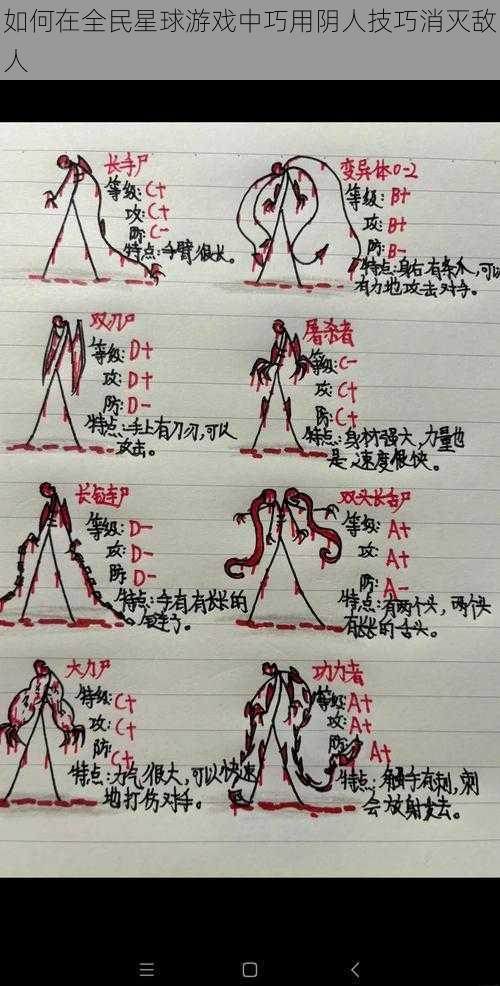 如何在全民星球游戏中巧用阴人技巧消灭敌
人
长手尸
等级:C+
攻:C+
防:C-
特点:手臂很长。
变异体0-2
等级:B+
攻:B+
防:B-
特点:身右有条爪,可以
有力地攻击对手。
双刀尸
等级:D+
攻:D+
防:D-
特点:手上有刀刃,可以
攻击。
屠杀者
等级:C-
攻:C+
防:C+
特点:身材强大,力量也
是,速度很快。
长链尸
等级:D-
攻:D-
防:D-
特点:手有有长长的
链子。
双头长舌尸
等级:A+
攻:A+
防:A-
特点:有两个头,两个头
有长长的舌头。
大力尸
等级:C+
攻:C+
防:C+
特点:力气很大,可以快速
地打伤对手。
功力者
等级:A+
攻:A+
防:A+
特点:触手有刺,刺
会放射发去。